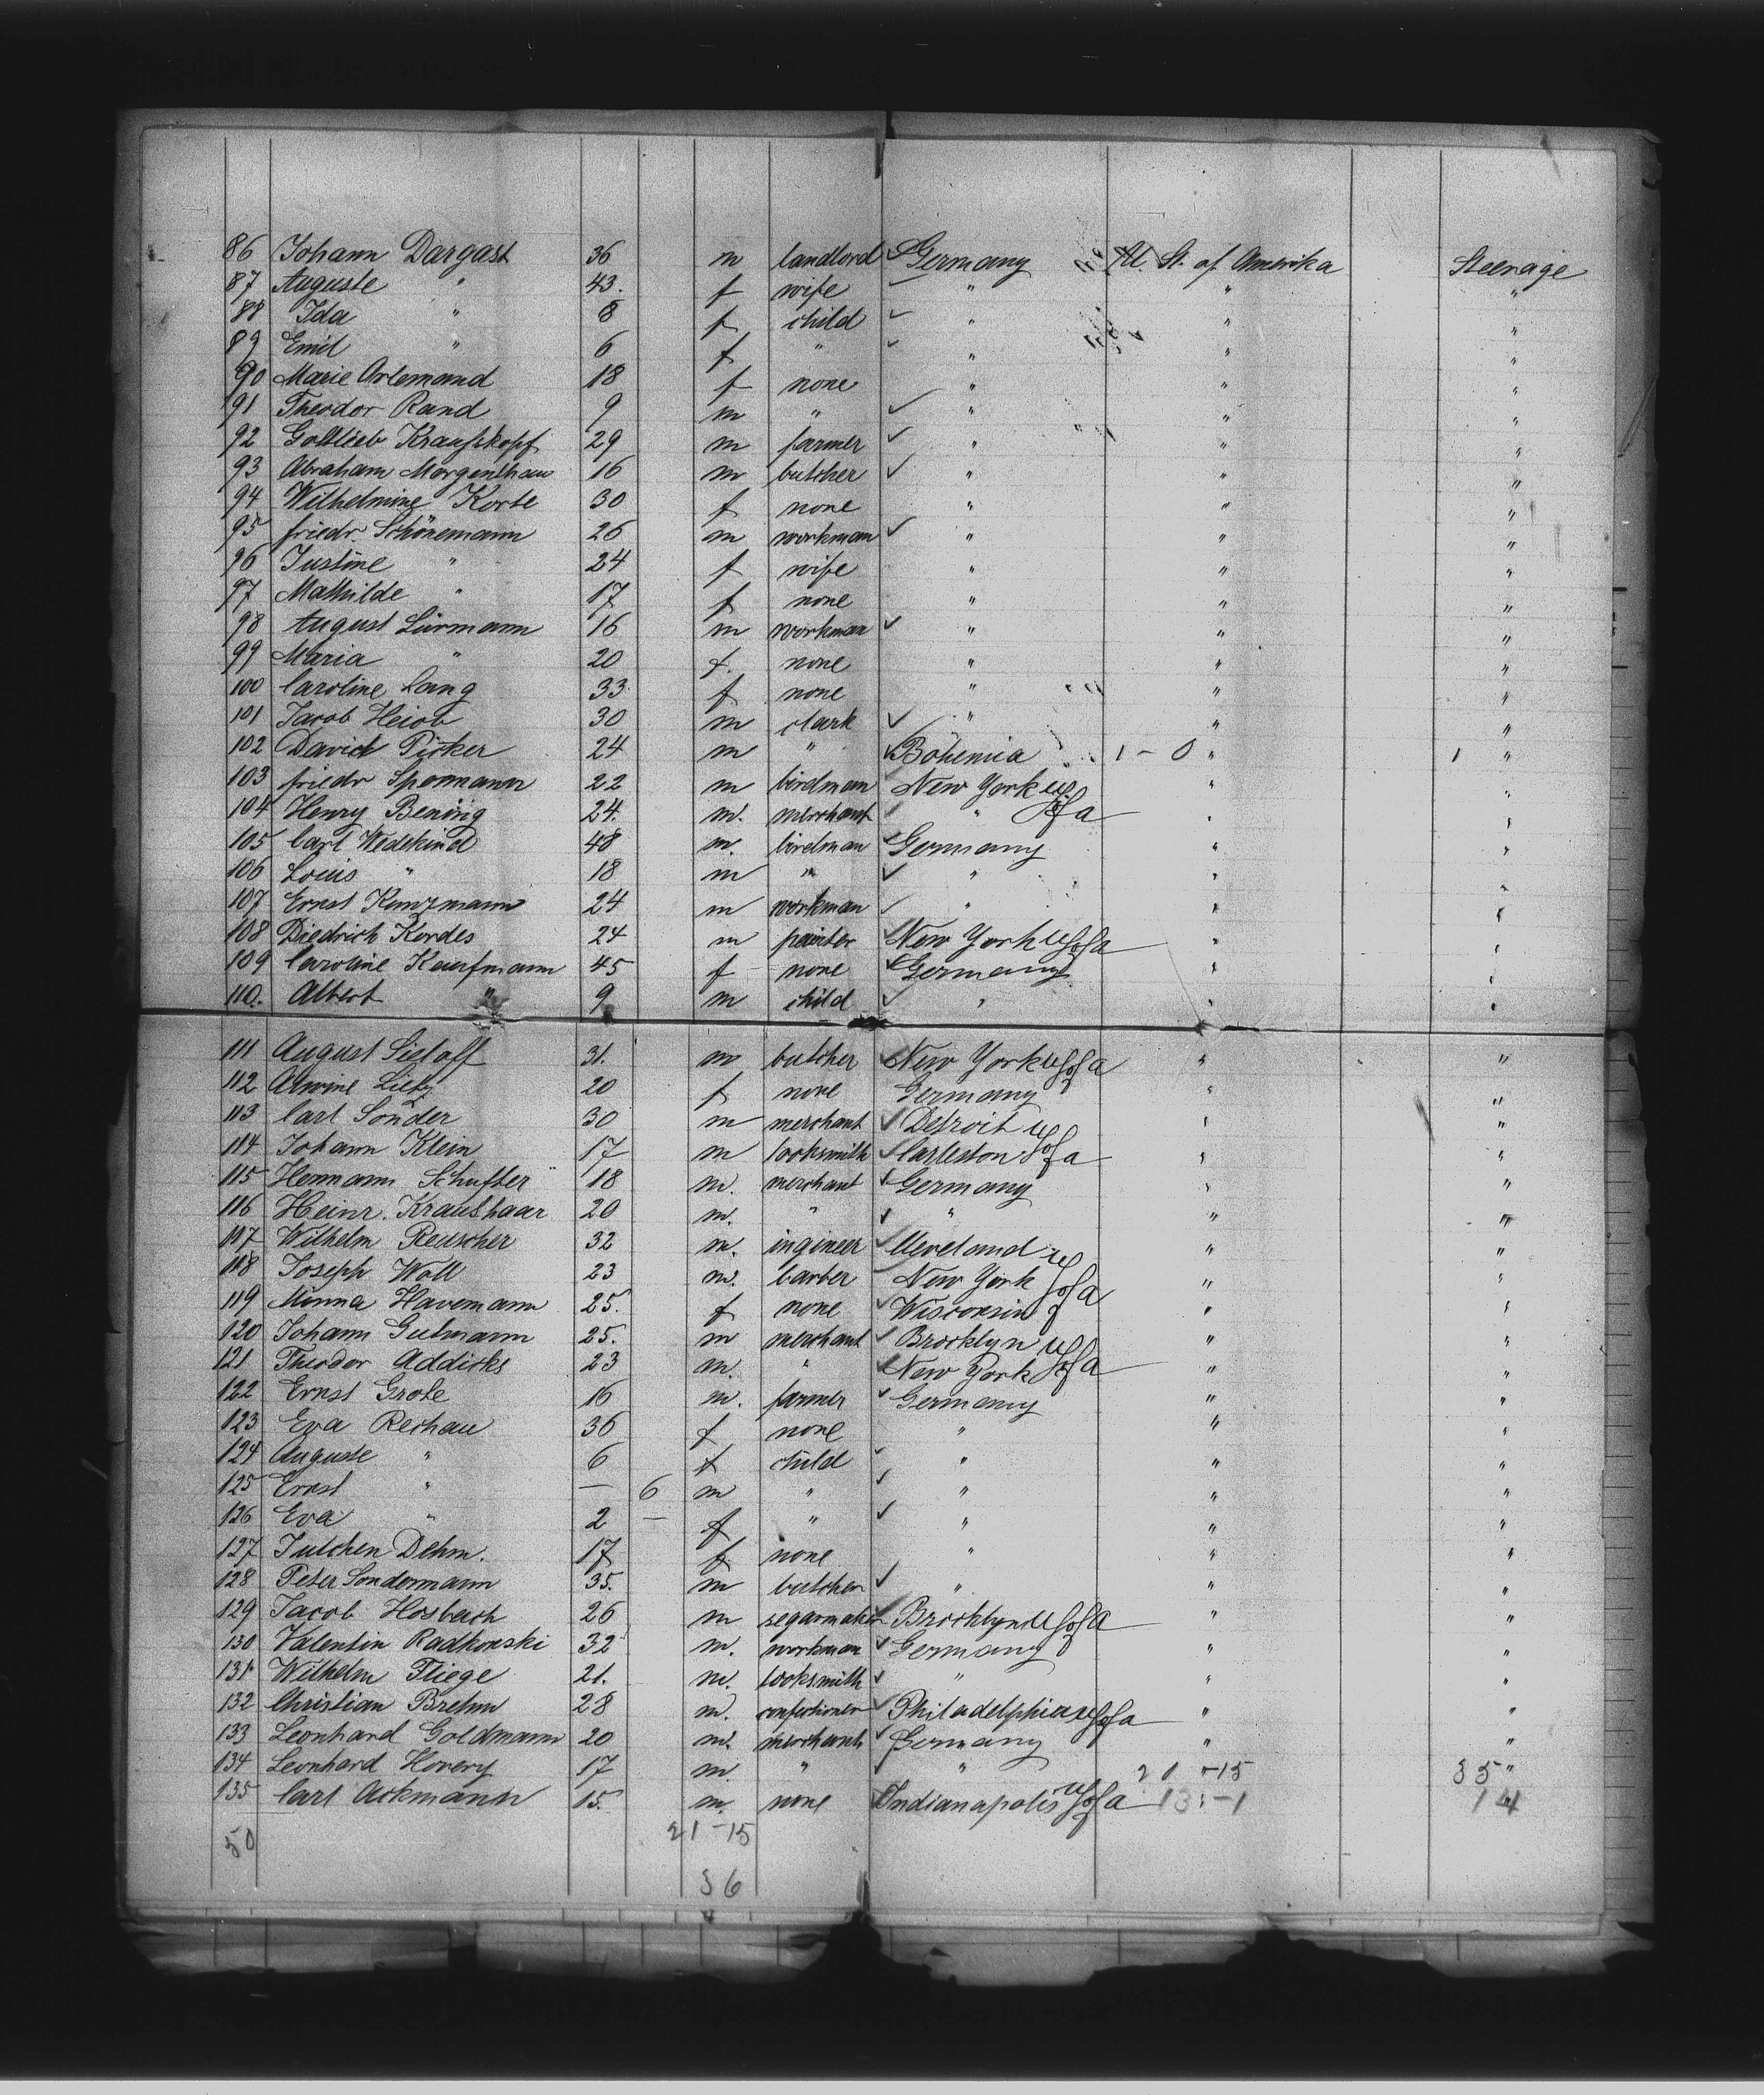 86 Johann Dargast 36 m landlord Germany U. St. of Amerika Steerage
87 Auguste " 43. f wife " " "
88 Ida " 8 f child " " "
89 Emil " 6 f " " " "
90 Marie Artemand 18 f none " " "
91 Theodor Rand 9 m " " " "
92 Gottlieb Kraußkopf 29 m farmer " " "
93 Abraham Morgenthau 16 m butcher " " "
94 Wilhelmine Korte 30 f none " " "
95 friedr. Schönemann 26 m workman " " "
96 Justine " 24 f wife " " "
97 Mathilde " 17 f none " " "
98 August Lürmann 16 m workman " " "
99 Maria " 20 f. none " " "
100 Caroline Lang 33 f none " " "
101 Jacob Heiob 30 m clark " " "
102 David Picker 24 m " Bohemia 1 - 0 " 1 "
103 friedr Spormann 22 m birdman New York U " "
104 Henry Bening 24. m. merchant " S of a " "
105 Carl Wedekind 48 m. birdman Germany " "
106 Louis " 18 m " " " "
107 Ernst Kunzmann 24 m workman " " "
108 Diedrich Kordes 24 m painter New York U S of a " "
109 Caroline Kaufmann 45 f none Germany " "
110. Albert " 9 m child " " "
111 August 31. m butcher New York U S of a " "
112 Alwine Lietz 20 f none Germany " "
113 Carl Sonder 30 m merchant Detroit U " "
114 Johann Klein 17 m looksmith Carleston S of a " "
115 Hermann Schuster 18 m. merchant Germany " "
116 Heinr. Kraushaar 20 m. " " " "
117 Wilhelm Reuscher 32 m. ingineer Cleveland U " "
118 Joseph Woll 23 m. barber New York S of a " "
119 Minna Havemann 25. f none Wisconsin " "
120 Johann Gutmann 25. m merchant Brooklyn U " "
121 Theodor Addicks 23 m. " New York S of a " "
122 Ernst Grote 16 m. farmer Germany " "
123 Eva Rechau 36 f none " " "
124 Auguste " 6 f child " " "
125 Ernst " — 6 m " " " "
126 Eva " 2 — f " " " "
127 Julchen Dehm. 17 f none " " "
128 Peter Sondermann 35. m butcher " " "
129 Jacob Hosbach 26 m segarmaker Brooklyn U S of a " "
130 Valentin Radkowski 32 m. workman Germany " "
131 Wilhelm Fliege 21. m. looksmith " " "
132 Christian Brehm 28 m. confectioner Philadelphia U S of a " "
133 Leonhard Goldmann 20 m. merchant Germany " "
134 Leonhard Hovery 17 m. " " 21 - 15 35 "
135 Carl Ackmann 15. m. none Indianapolis U S of a 13 - 1 14
50 21 - 15
36